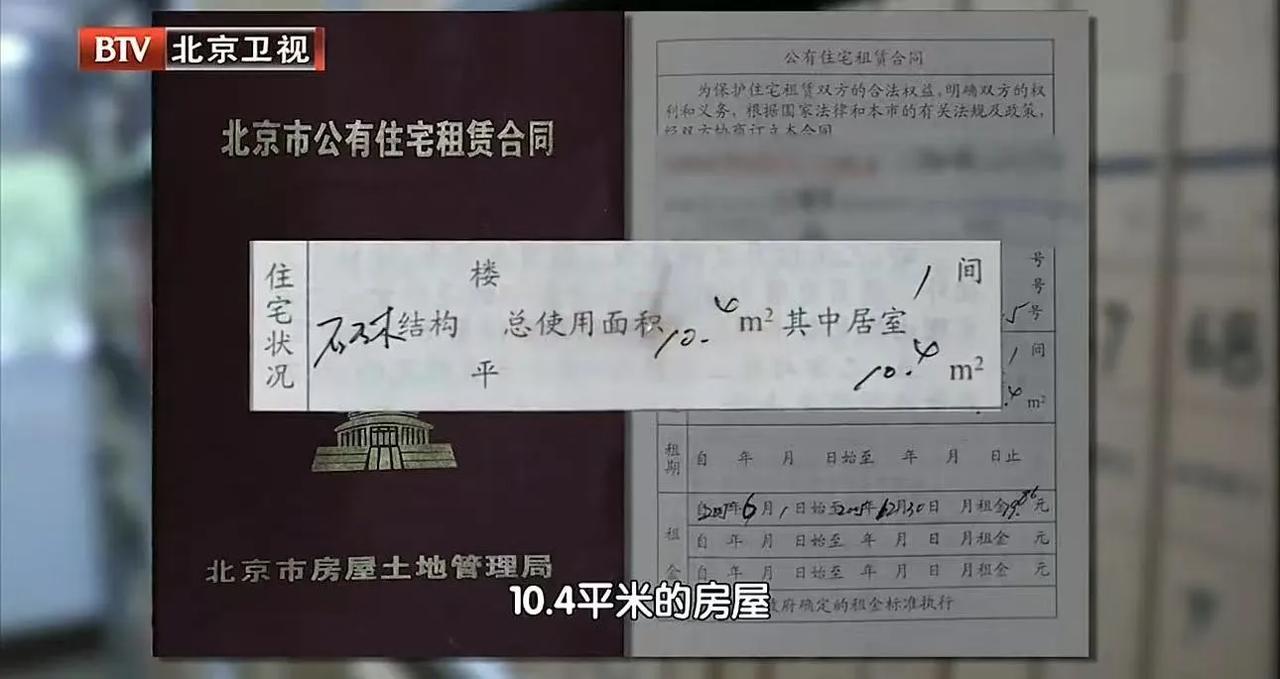 BTV 北京卫视
北京市公有住宅租赁合同
北京市房屋土地管理局
公有住宅租赁合同
为保护住宅租赁双方的合法权益,明确双方的权
利和义务，根据国家法律和本市的有关法规及政策，
经双方协商订立本合同
号
号
5号
住宅状况
楼 1 间
结构 总使用面积10.4 m² 其中居室
平 10.4 m²
1 间
.4 m²
租期 自 年 月 日始至 年 月 日止
年6月1日始至 年12月30日 月租金 元
租 自 年 月 日始至 年 月 日 月租金 元
金 自 年 月 日始至 年 月 日 月租金 元
府确定的租金标准执行
10.4平米的房屋